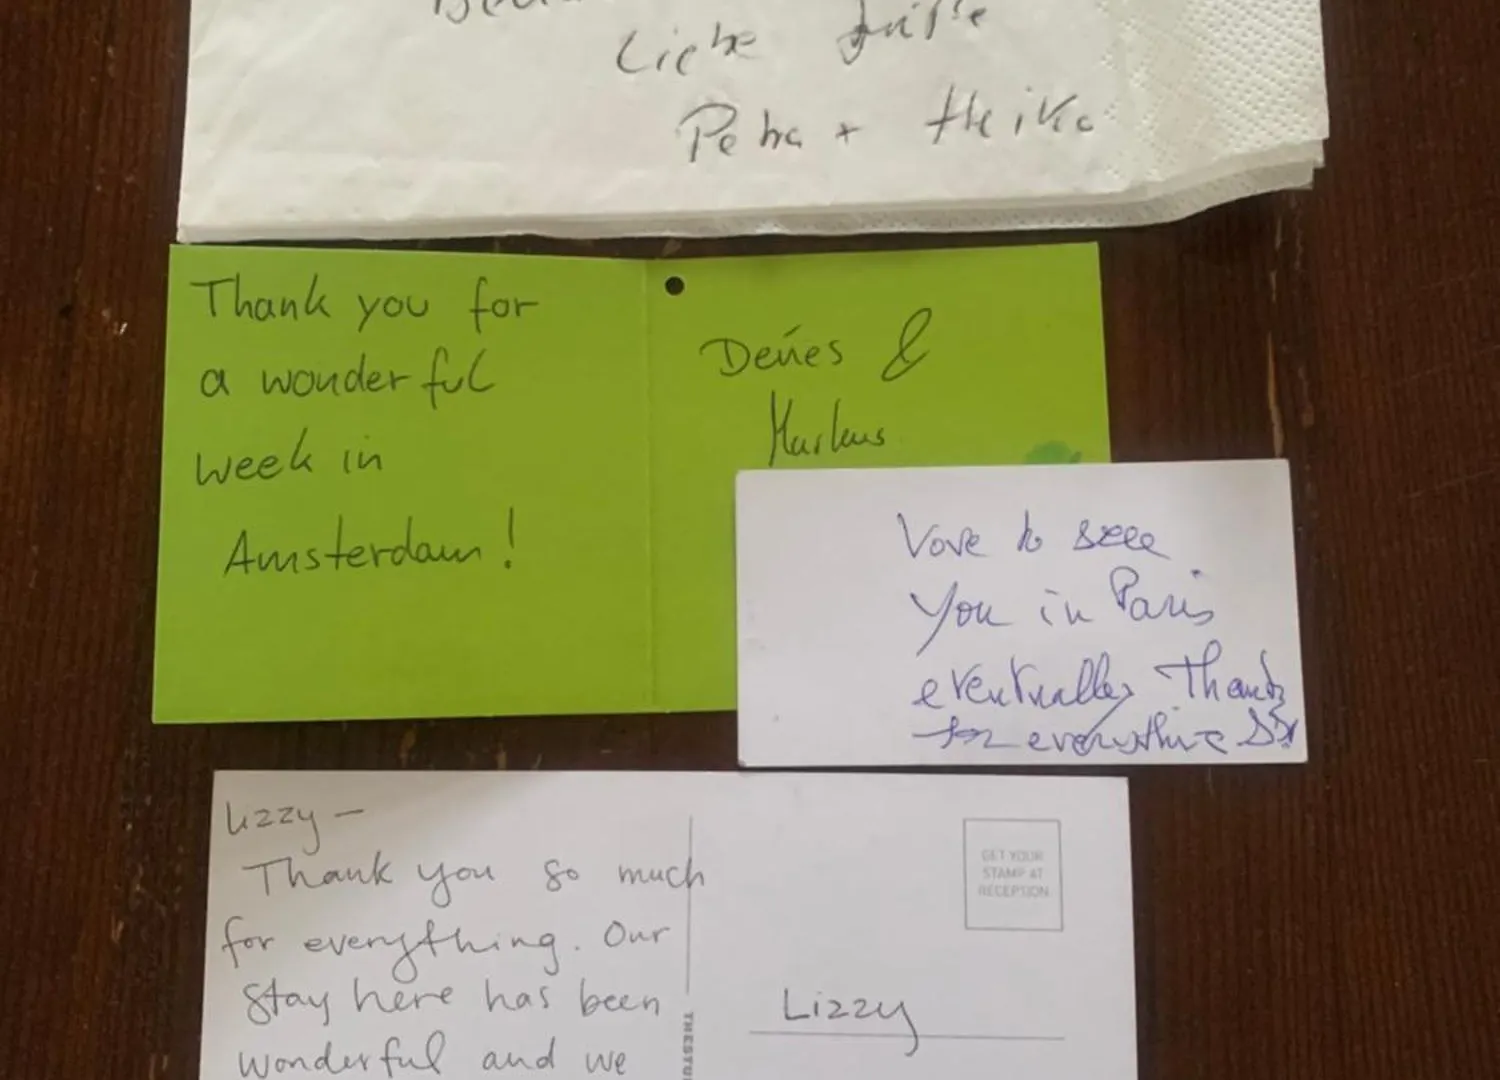 Liebe Grüße
Petra + Heike
Thank you for
a wonderful
week in
Amsterdam!
Denés &
Markus
to seee
You in Paris
eventually Thanks
for everything
Lizzy —
Thank you so much
for everything. Our
stay here has been
wonderful and we
GET YOUR
STAMP AT
RECEPTION
Lizzy
THESTU